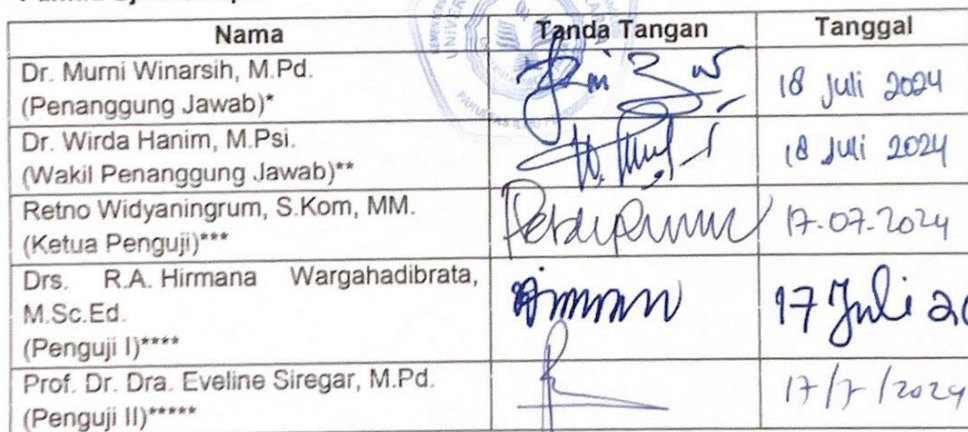 Nama Tanda Tangan Tanggal
Dr. Murni Winarsih, M.Pd.
(Penanggung Jawab)* 18 Juli 2024
Dr. Wirda Hanim, M.Psi.
(Wakil Penanggung Jawab)** 18 Juli 2024
Retno Widyaningrum, S.Kom, MM.
(Ketua Penguji)*** 17-07-2024
Drs. R.A. Hirmana Wargahadibrata,
M.Sc.Ed. 17 Juli 20
(Penguji I)****
Prof. Dr. Dra. Eveline Siregar, M.Pd.
(Penguji II)***** 17/7/2024